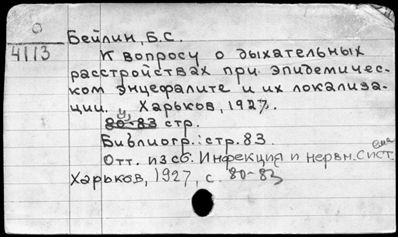 О
4113
Бейлин, Б.С.
К вопросу о дыхательных
расстройствах при эпидемичес-
ком энцефалите и их локализа-
ции. Харьков, 1927.
80-83 стр.
Библиогр.: стр. 83.
Отт. из сб. Инфекция и нервн. систᵉᵐᵃ
Харьков, 1927, с. 80-83